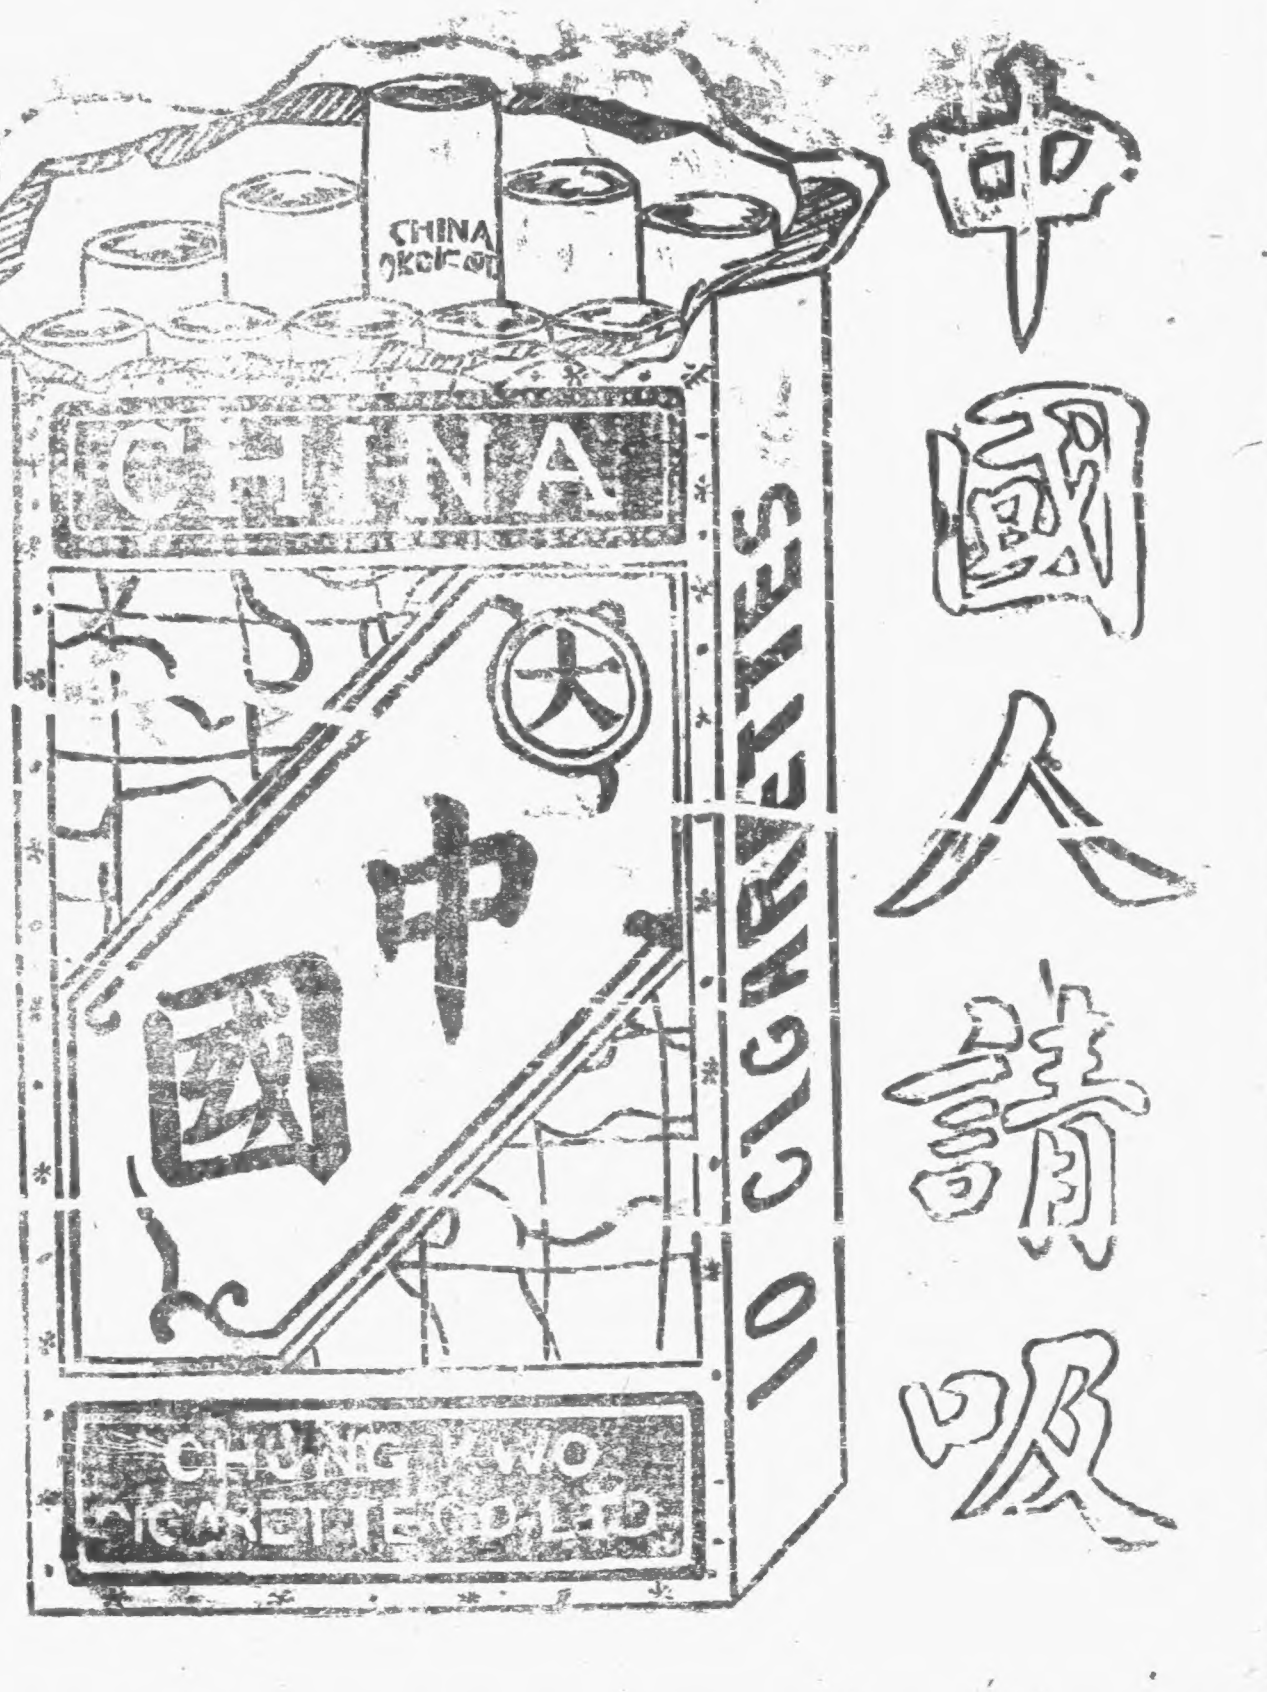 中國人請吸
CHINA
CHINA
大
中國
10 CIGARETTES
CHUNG KWO
CIGARETTE CO. LTD.